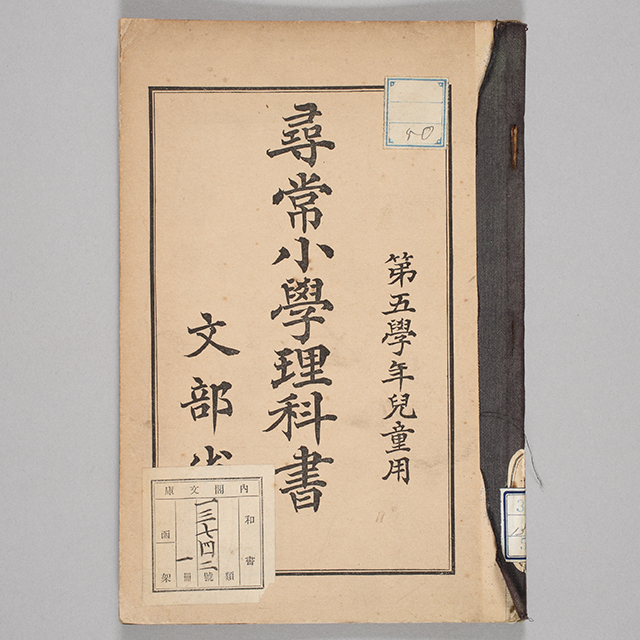 第五學年兒童用
尋常小學理科書
文部省
90
内閣文庫
和書類
一三七四二號
一冊
函
架
3